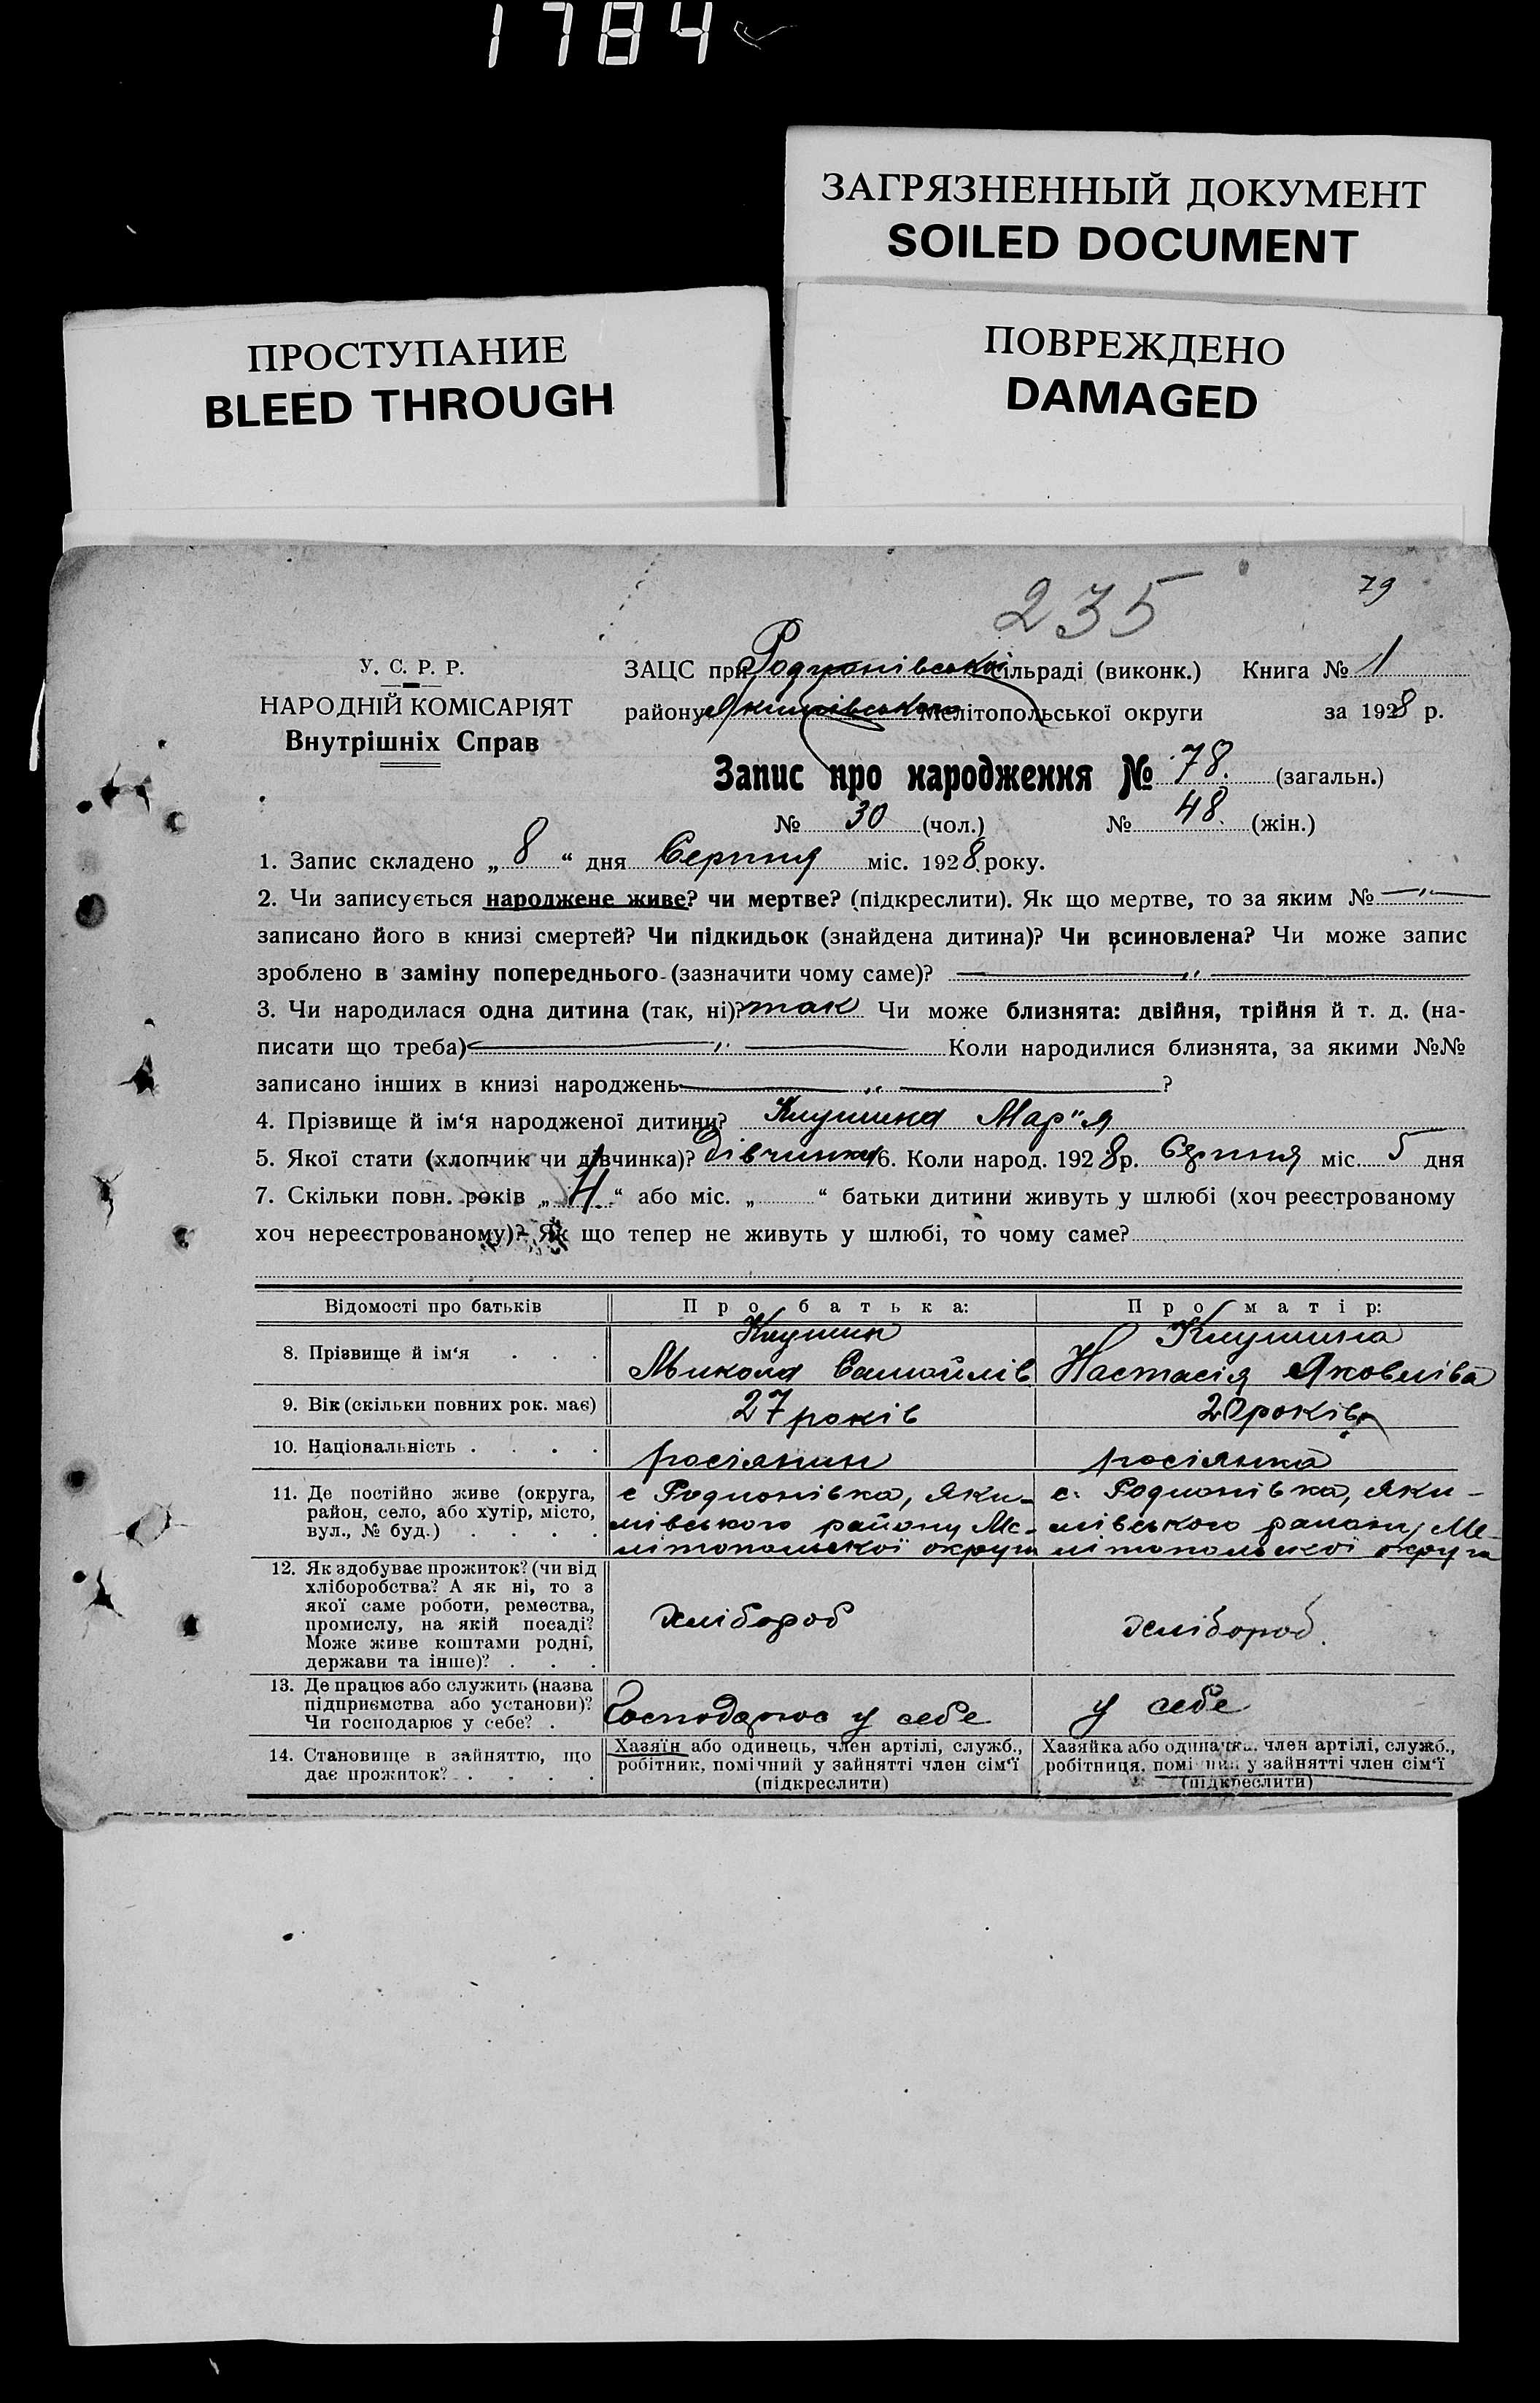 1784
ЗАГРЯЗНЕННЫЙ ДОКУМЕНТ
SOILED DOCUMENT
ПРОСТУПАНИЕ
BLEED THROUGH
ПОВРЕЖДЕНО
DAMAGED
235
79
У. С. Р. Р.
НАРОДНІЙ КОМІСАРІЯТ
Внутрішніх Справ
ЗАЦС при Родионівській сільраді (виконк.) Книга № 1
району Якимівського Мелітопольської округи за 1928 р.
Запис про народження № 78. (загальн.)
№ 30 (чол.) № 48. (жін.)
1. Запис складено „ 8 “ дня Серпня міс. 1928 року.
2. Чи записується народжене живе? чи мертве? (підкреслити). Як що мертве, то за яким № —„—
записано його в книзі смертей? Чи підкидьок (знайдена дитина)? Чи всиновлена? Чи може запис
зроблено в заміну попереднього (зазначити чому саме)? —„—
3. Чи народилася одна дитина (так, ні)? так Чи може близнята: двійня, трійня й т. д. (на-
писати що треба) —„— Коли народилися близнята, за якими №№
записано інших в книзі народжень —„— ?
4. Прізвище й ім‘я народженої дитини? Клушина Мар"я
5. Якої стати (хлопчик чи дівчинка)? дівчинка 6. Коли народ. 1928 р. Серпня міс. 5 дня
7. Скільки повн. років „ 4 “ або міс. „ “ батьки дитини живуть у шлюбі (хоч реєстрованому
хоч нереєстрованому)? Як що тепер не живуть у шлюбі, то чому саме?
Відомості про батьків Про батька: Про матір:
8. Прізвище й ім‘я . . . Клушин Микола Самойлів Клушина Настасія Яковліва
9. Вік (скільки повних рок. має) 27 років 20 років
10. Національність . . . . росіянин росіянка
11. Де постійно живе (округа,
район, село, або хутір, місто,
вул., № буд.) . . . .
с Родионівка, Яки-
мівського району Ме-
літопольскої округи
с. Родионівка, Яки-
мівського району Ме-
літопольскої округи
12. Як здобуває прожиток? (чи від
хліборобства? А як ні, то з
якої саме роботи, ремества,
промислу, на якій посаді?
Може живе коштами родні,
держави та інше)? . . .
хлібороб
хлібороб.
13. Де працює або служить (назва
підприємства або установи)?
Чи господарює у себе? .
Господарює у себе
у себе
14. Становище в зайняттю, що
дає прожиток? . . . .
Хазяїн або одинець, член артілі, служб.,
робітник, помічний у зайнятті член сім‘ї
(підкреслити)
Хазяйка або одиначка, член артілі, служб.,
робітниця, помічний у зайнятті член сім‘ї
(підкреслити)